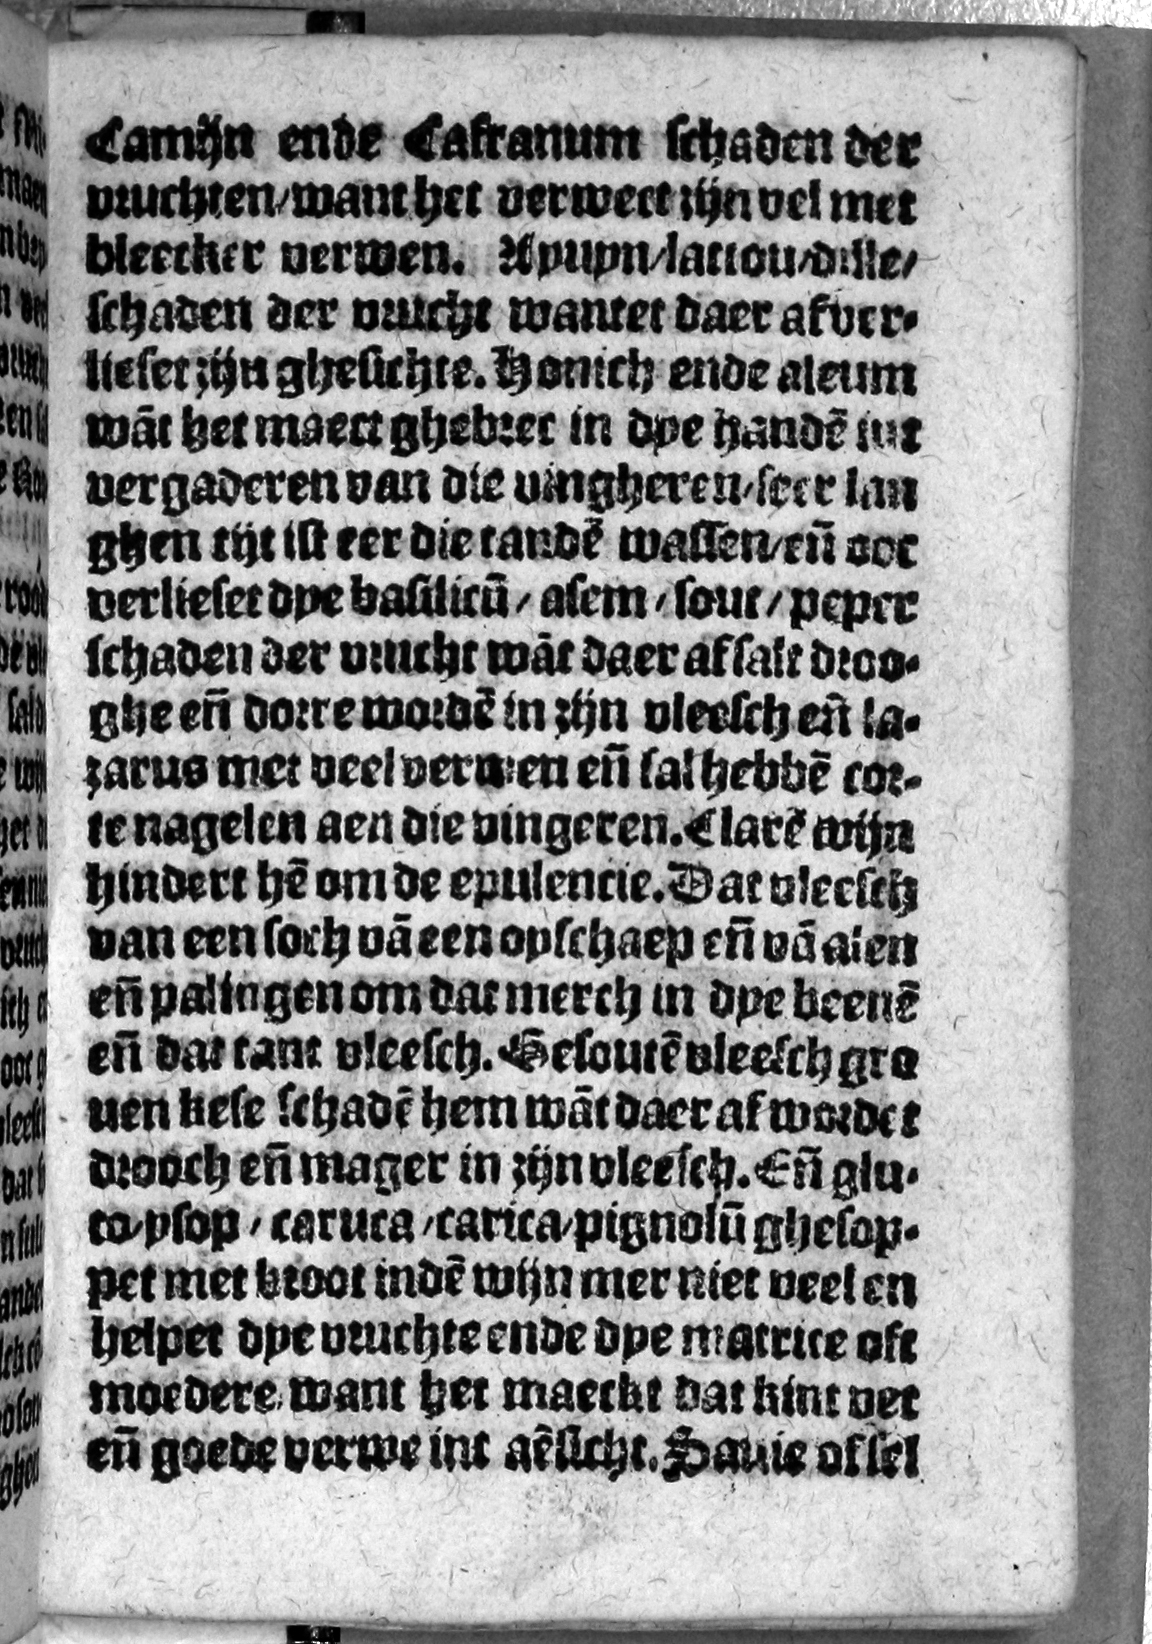 Camijn ende Cafranum schaden der
vruchten/want het verwect zijn vel met
bleecker verwen. Apuyn/lattou/dille/
schaden der vrucht wantet daer af ver-
lieset zijn ghesichte. Honich ende aleum
wāt het maect ghebrec in dye handē int
vergaderen van die vingheren/seer lan
ghen tijt ist eer die tandē wassen/eñ ooc
verlieset dye basilicū/ asem/ sout/ peper
schaden der vrucht wāt daer af salt droo-
ghe eñ dorre wordē in zijn vleesch eñ la-
zarus met veel verwen eñ sal hebbē cor-
te nagelen aen die vingeren. Clarē wijn
hindert hē om de epulencie. Dat vleesch
van een soch vā een opschaep eñ vā alen
eñ palingen om dat merch in dye beenē
eñ dat tant vleesch. Gesoutē vleesch gro
uen kese schadē hem wāt daer af wordet
drooch eñ mager in zijn vleesch. Eñ glu-
to/ysop/ caruca/carica/pignolū ghesop-
pet met broot indē wijn mer niet veel en
helpet dye vruchte ende dye matrice oft
moedere want het maeckt dat kint vet
eñ goede verwe int aēsicht. Sauie of sel